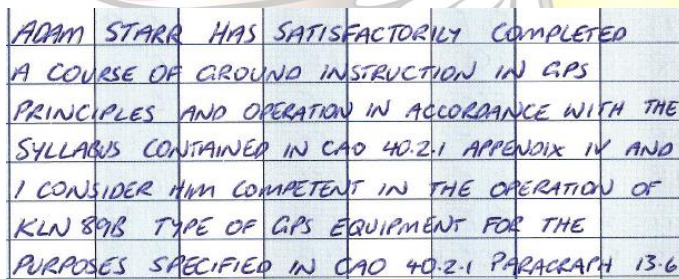 ADAM STARR HAS SATISFACTORILY COMPLETED
A COURSE OF GROUND INSTRUCTION IN GPS
PRINCIPLES AND OPERATION IN ACCORDANCE WITH THE
SYLLABUS CONTAINED IN CAO 40.2.1 APPENDIX IV AND
I CONSIDER HIM COMPETENT IN THE OPERATION OF
KLN 89B TYPE OF GPS EQUIPMENT FOR THE
PURPOSES SPECIFIED IN CAO 40.2.1 PARAGRAPH 13.6